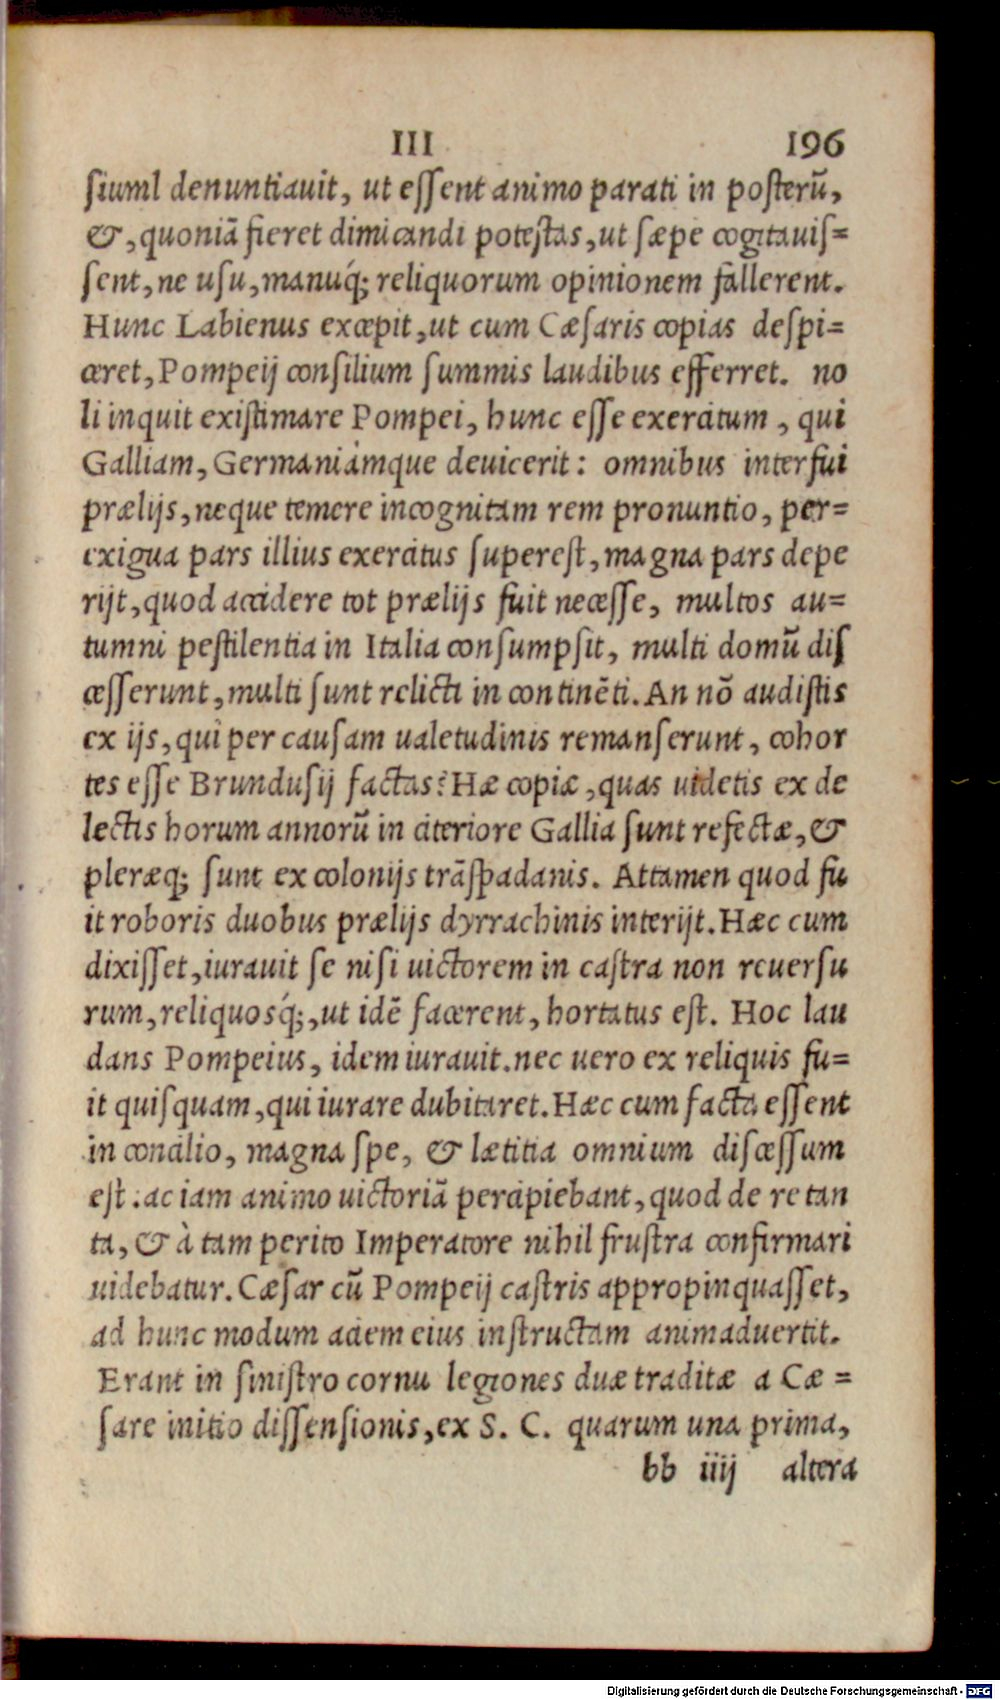 III 196
siuml denuntiauit, ut essent animo parati in posterũ,
&, quoniã fieret dimicandi potestas, ut sæpe cogitauis=
sent, ne usu, manuq́; reliquorum opinionem fallerent.
Hunc Labienus excepit, ut cum Cæsaris copias despi=
ceret, Pompeij consilium summis laudibus efferret. no
li inquit existimare Pompei, hunc esse exercitum, qui
Galliam, Germaniámque deuicerit: omnibus interfui
prælijs, neque temere incognitam rem pronuntio, per=
exigua pars illius exercitus superest, magna pars depe
rijt, quod accidere tot prælijs fuit necesse, multos au=
tumni pestilentia in Italia consumpsit, multi domũ dis
cesserunt, multi sunt relicti in continẽti. An nõ audistis
ex ijs, qui per causam ualetudinis remanserunt, cohor
tes esse Brundusij factas? Hæ copiæ, quas uidetis ex de
lectis horum annorũ in citeriore Gallia sunt refectæ, &
pleræq; sunt ex colonijs trãspadanis. Attamen quod fu
it roboris duobus prælijs dyrrachinis interijt. Hæc cum
dixisset, iurauit se nisi uictorem in castra non reuersu
rum, reliquosq́;, ut idẽ facerent, hortatus est. Hoc lau
dans Pompeius, idem iurauit. nec uero ex reliquis fu=
it quisquam, qui iurare dubitaret. Hæc cum facta essent
in concilio, magna spe, & lætitia omnium discessum
est. ac iam animo uictoriã percipiebant, quod de re tan
ta, & à tam perito Imperatore nihil frustra confirmari
uidebatur. Cæsar cũ Pompeij castris appropinquasset,
ad hunc modum aciem eius instructam animaduertit.
Erant in sinistro cornu legiones duæ traditæ a Cæ=
sare initio dissensionis, ex S. C. quarum una prima,
bb iiij altera
Digitalisierung gefördert durch die Deutsche Forschungsgemeinschaft - DFG